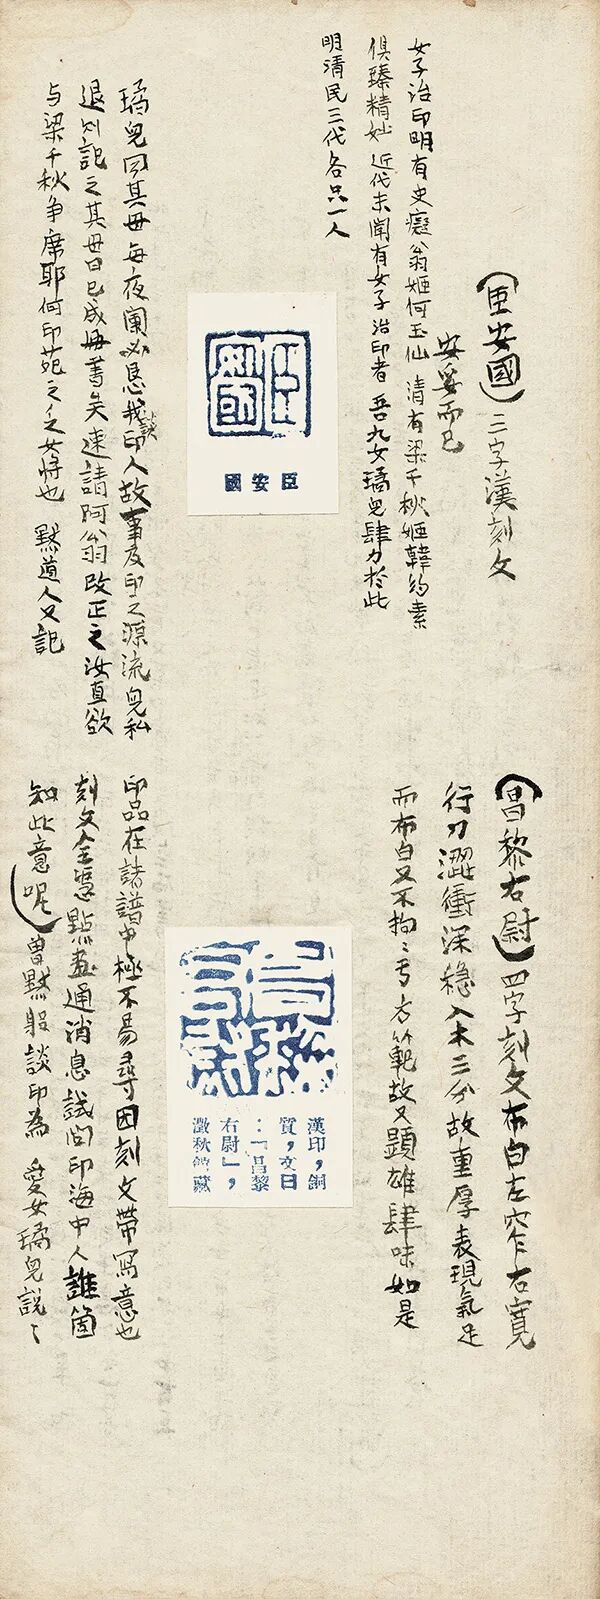 (臣安國)三字漢刻文
安妥而已
女子治印明有史癡翁姬何玉仙 清有梁千秋姬韓約素
俱臻精妙 近代未聞有女子治印者 吾九女璚兒肆力於此
明清民三代各只一人
臣安國
璚兒因其毋每夜闌必恳我談印人故事及印之源流兒私
退則記之其毋曰已成冊書矣速請阿翁改正之汝直欲
与梁千秋争席耶何印苑之乏女將也 黙道人又記
(昌黎右尉)四字刻文布白左窄右寬
行刀澀衝深穏入木三分故重厚表現氣足
而布白又不拘〻亐方範故又顕雄肆味如是
漢印，銅
質，文曰
：「昌黎
右尉」，
澂秋館藏
印品在諸譜中極不易尋因刻文帶寫意也
刻文全凴點画通消息試問印海中人誰箇
知此意呢)曾黙躬談印為 愛女璚兒說〻